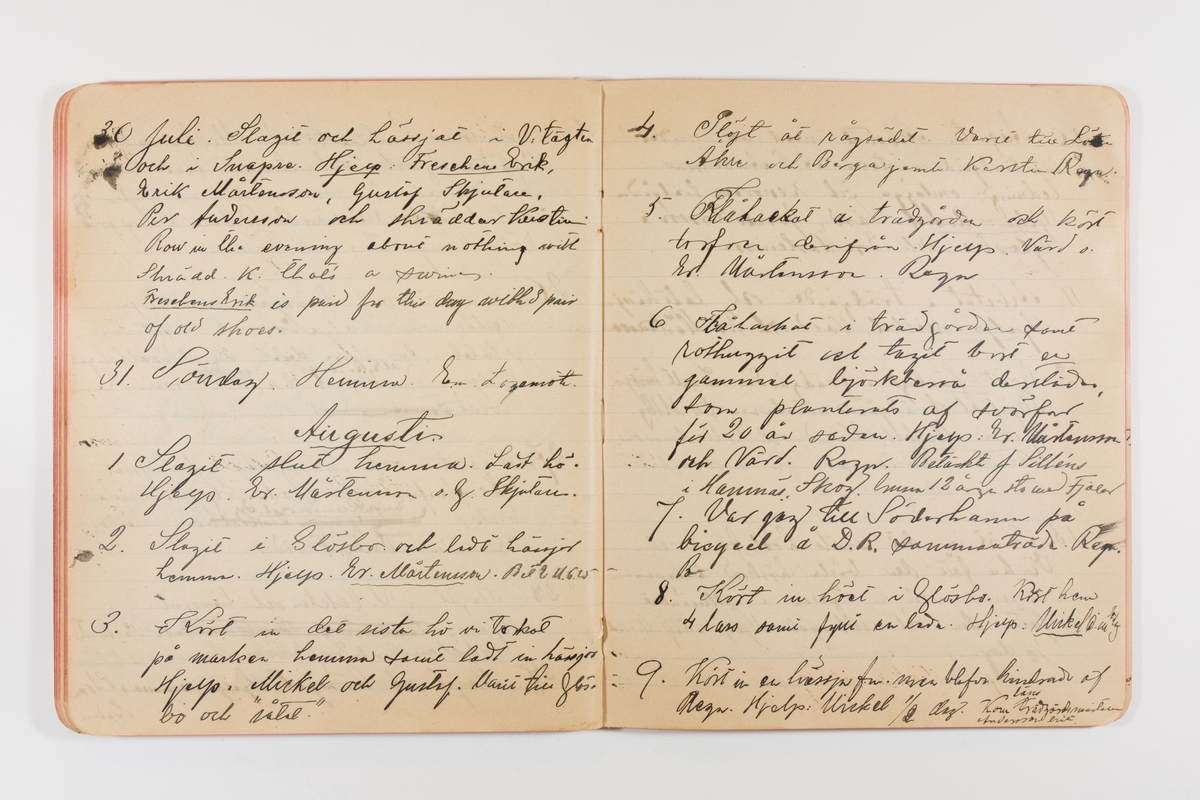 30 Juli. Slagit och hässjat i V. tägten
och i Snapra. Hjelp. Freschens Erik,
Erik Mårtensson, Gustof Skjutare,
Per Andersson och skräddar Kerstin.
Row in the evening about nothing with
Skrädd. K. thats a swine.
Freschens Erik is paid for this day with 2 pair
of old shoes.
31. Söndag. Hemma. Em. Logemöte.
Augusti.
1 Slagit slut hemma. Ladt hö.
Hjelp. Er. Mårtensson o. G. Skjutare.
2. Slagit i Glösbo och ladt hässjor
hemma. Hjelp. Er. Mårtensson.
3. Kört in det sista hö vi torkat
på marken hemma samt ladt in hässjor
Hjelp. Mickel och Gustaf. Varit till Glös-
bo och
4. Plöjt åt rågsädet. Varit till
Åkre och Berga jemte Kerstin Regn.
5. Flåhackat i trädgården och kört
torfven derifrån Hjelp. Vård o.
Er. Mårtensson. Regn
6 Flåhackat i trädgården samt
rothuggit och tagit bort en
gammal björkberså derstädes,
som planterats af svärfar
för 20 år sedan. Hjelp. Er. Mårtensson
och Vård. Regn. Betäckt f Selléns
i Hamnäs, Skog.
7. Var jag till Söderhamn på
bicycel å D.R. sammanträde. Regn.
8. Kört in höet i Glösbo. Kört hem
4 lass samt fyllt en lada. Hjelp: Mickel
9. Kört in en hässja fm. men blefvo hindrade af
Regn. Hjelp: Mickel 1/2 dag. Kom läns trädgårdsmästare
Andersson hit